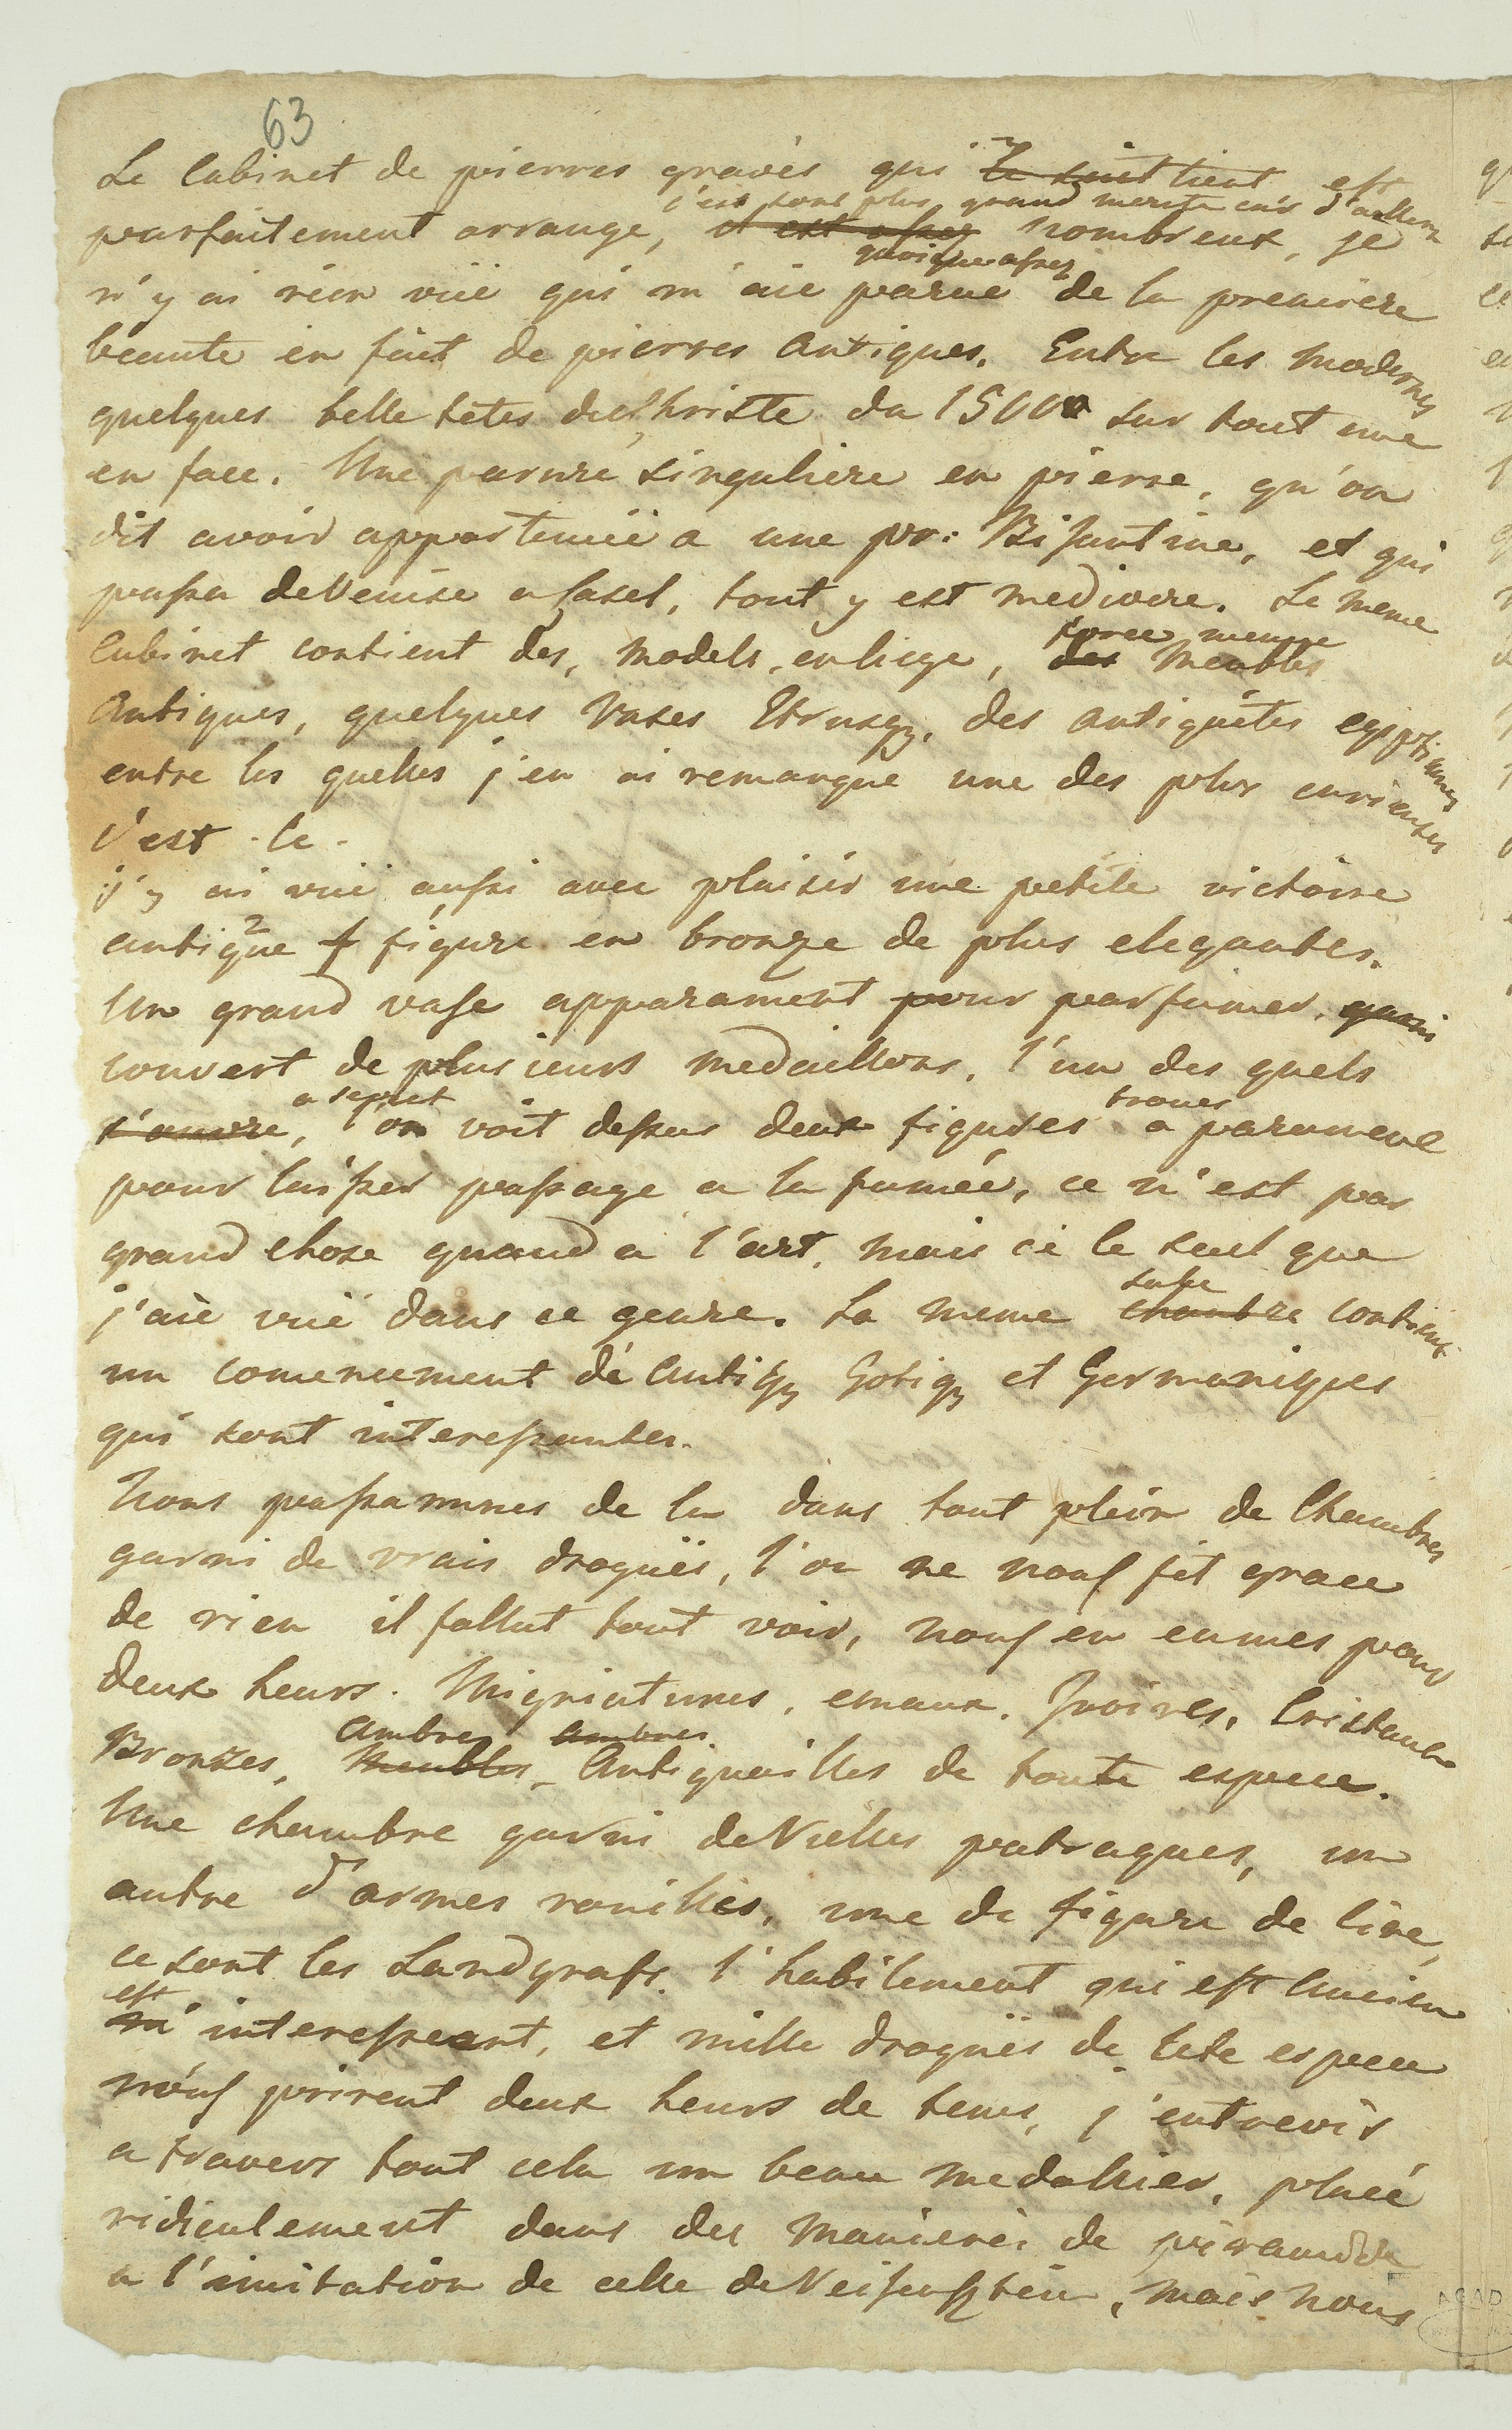 63
Le Cabinet de pierres gravés qui le suit tient est
c'est sont plus grand merite car d'ailleurs
parfaitement arrange, il est assez nombreux, je
quoique assez
n'y ai rien vüe qui m'aie parue de la premiere
beaute en fait de pierres Antiques. Entre les modernes
quelques belle têtes du Christe du 1500 sur tout une
en face. Une parure singuliere en pierre, qu'on
dit avoir appartenüe a une pr: Bisantine, et qui
passa de Venise a Casel, tout y est mediocre. Le meme
Cabinet contient des, models, en liege, des Meubles
Antiques, quelques Vases Etrusqz, des antiquites egiptiennes
entre les quelles j'en ai remarque une des plus curieuses
c'est - le -
j'y ai vüe aussi avec plaisir une petite victoire
antique 2 figure en bronze de plus elegantes.
Un grand vase apparament pour parfumer, garni
couvert de plusieurs medaillons, l'un des quels
a troues
s'ouvre, l'on voit dessus deux figures a parament
pour laisser passage a la fumée, ce n'est pas
grand chose quand a l'art, mais cè le seul que
salle
j'aie vüe dans ce genre. La meme chambre contient
un comencement de Antiqz Gotiqz et Germaniques
qui sont interessantes.
Nous passammes de la dans tout plein de Chambres
garni de vrais drogües, l'on ne nous fit grace
de rien il fallut tout voir, nous en eumes pour
deux heurs. Migniatures, emaux, Ivoires, Cristaux
Ambres ambres
Bronzes, Meubles, Antiquailles de toute espece.
Une chambre garni de Vielles patraques, un
autre d'armes rouillés, une de figure de cire,
ce sont les Landgrafs, l'habilement qui est Ancien
est
interessant, et mille drogües de tete espece
nous prirent deux heurs de tems, j'entrevis
a travers tout cela un beau medallier, placé
ridiculement dans des manieres de piramide
a l'imitation de celle de , mais nous